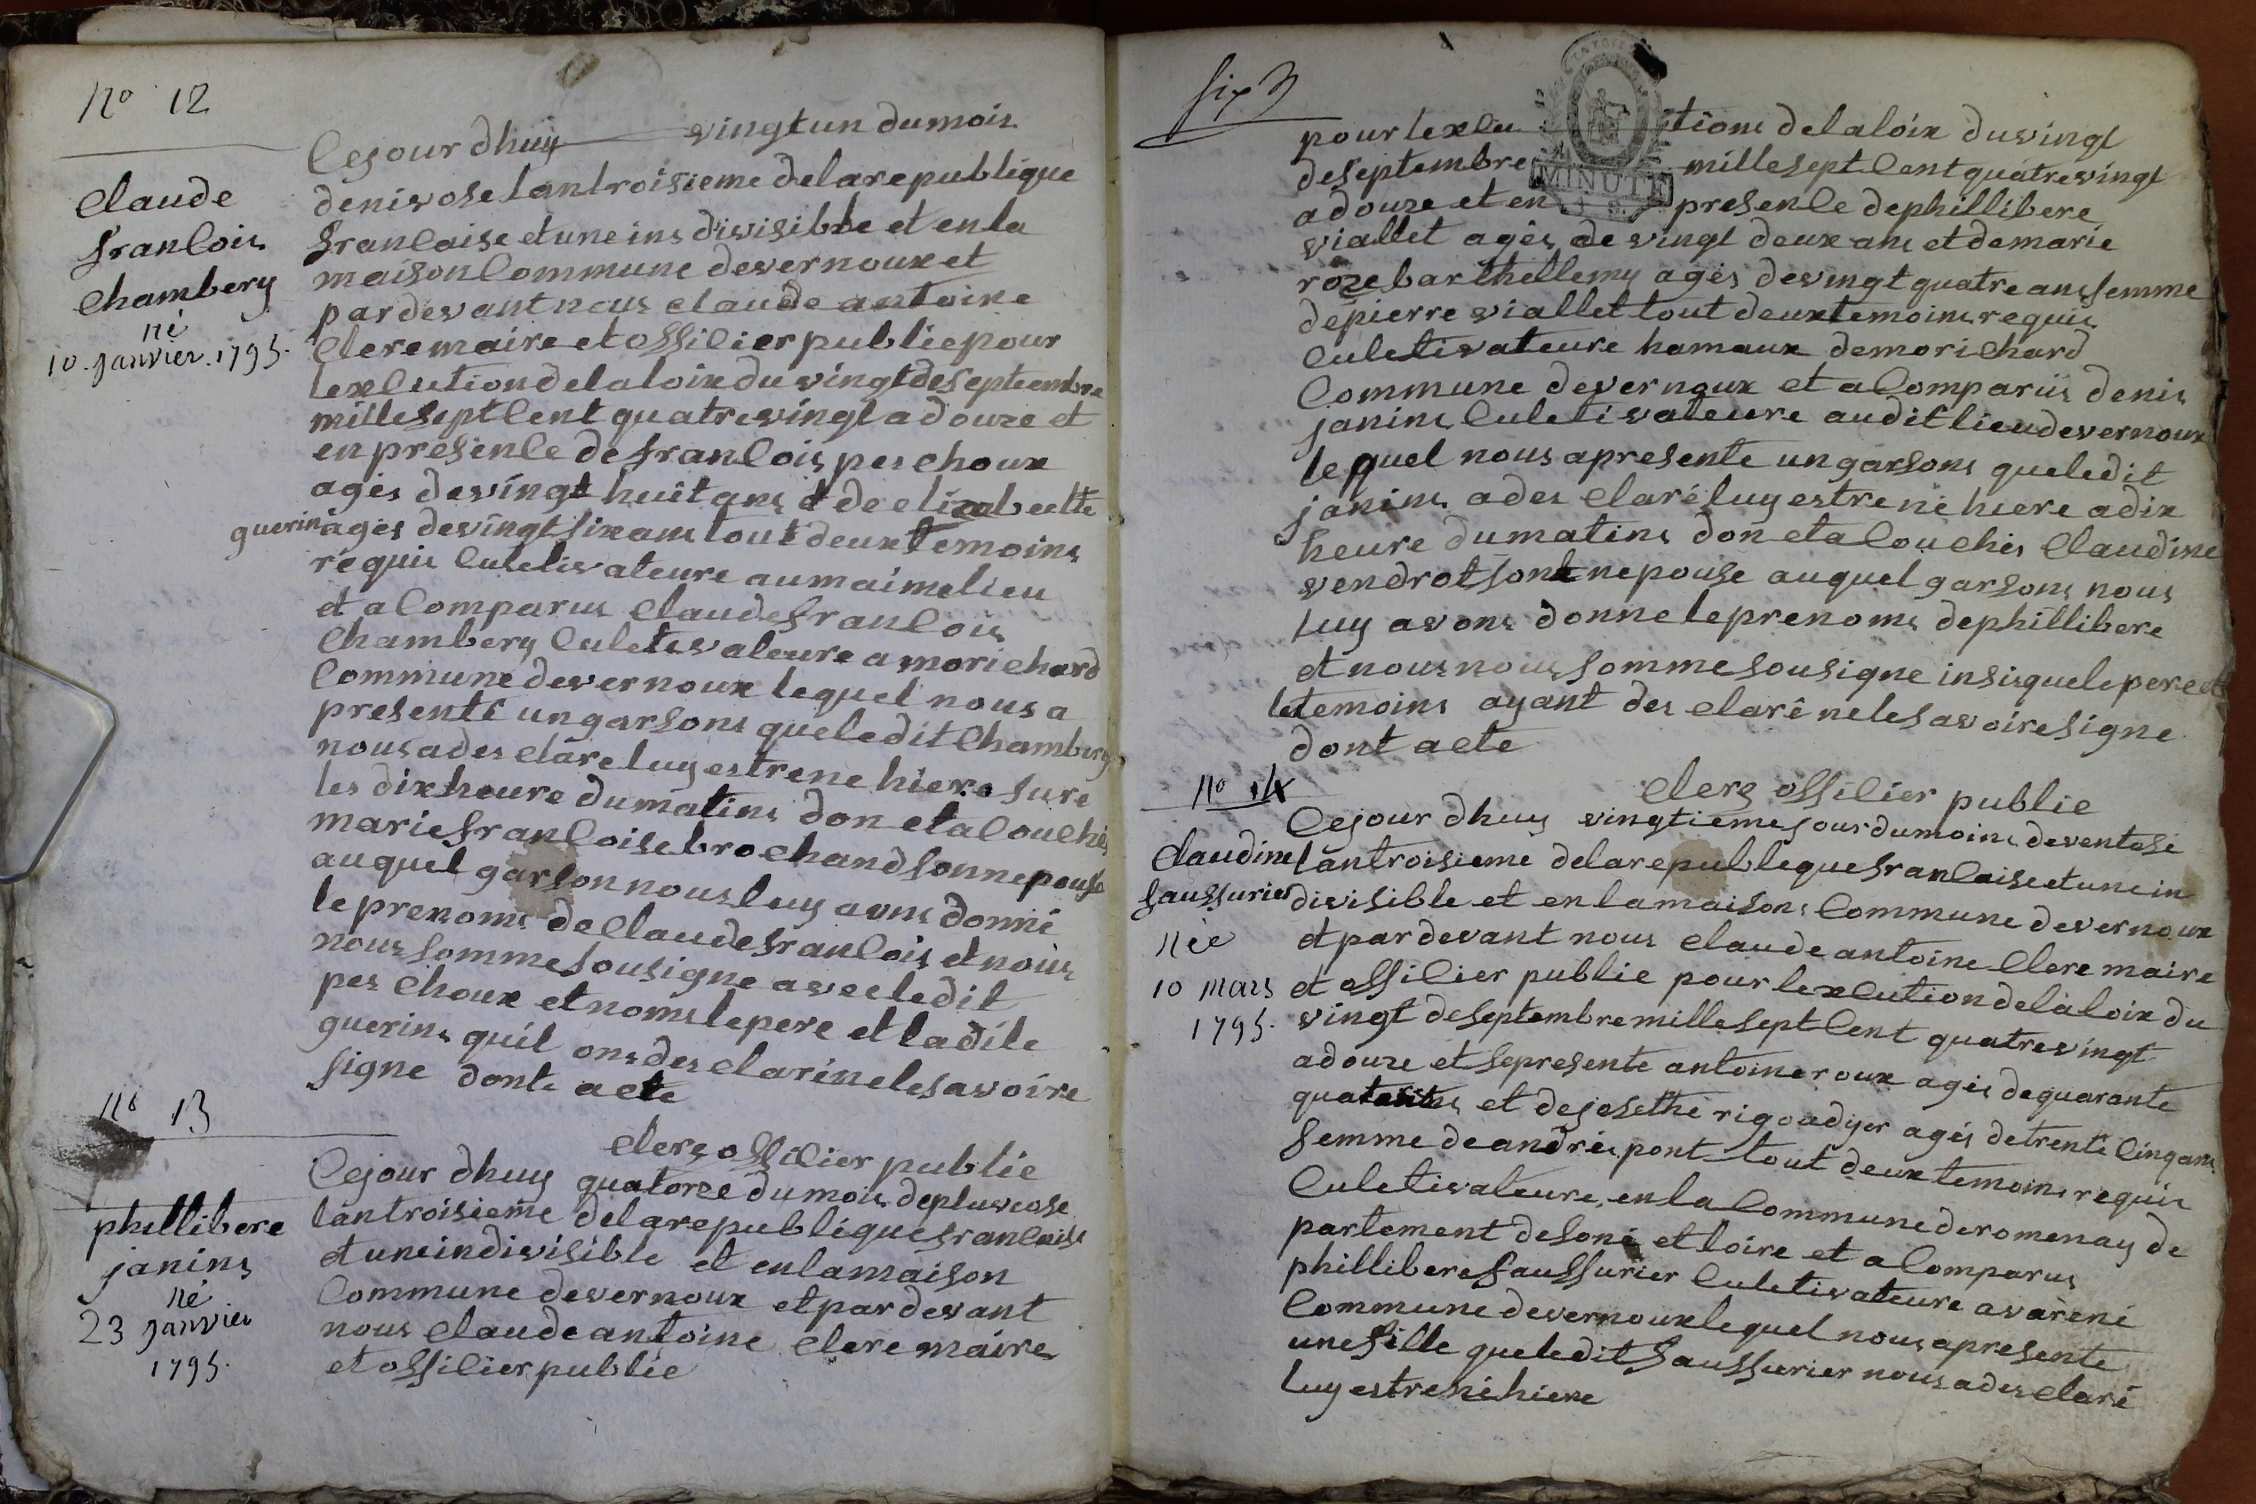 No 12
Claude
franCois
Chambery
né
10. janvier. 1795.
Cejour dhuy vingt un du mois
de nivose lan troisieme de la republique
franCaise et une ins divisible et en la
maison Commune devernoux et
par devant nous claude antoine
Clere maire et offiCier publie pour
lexCution de la loix du vingt de Septembre
mille Sept Cent quatre vingt a douze et
en présenCe de franCois pes choux
agés de vingt huit ans et de elizabeette
guerin agés de vingt six ans tout deux temoins
requis Culetivateure au maime lieu
et a Comparus Claude franCois
Chambery Culetivateure a morichard
Commune devernoux lequel nous a
presenté un garsons que le dit Chambery
nous a des clare luy estre ne hiere sure
les dix heure du matins don et a Couchés
marie franCoise brochand sonnepouse
auquel garson nous luy avns donné
le prenoms de Claude franCois et nous
nous somme sousigne avec le dit
pes choux et noms le pere et la dite
guerins quil ons des claré ne le savoire
signe dont acte
Clerg offiCier publie
no 13
phillibere
janins
né
23 janvier
1795.
Cejour dhuy quatorze du mois de pluviose
lan troisieme de la republique franCaise
et une indivisible et en la maison
Commune devernoux et par devant
nous Claude antoine Clere maire
et offiCier publie
six
pour lexCu itions de la loix du vingt
de septembre mille sept Cent quatre vingt
a douze et en presenCe de phillibere
viallet agés de vingt deux ans et de marie
roze barthellemy agés de vingt quatre ans femme
de pierre viallet tout deux temoins requis
Culetivateure hamaux de morichard
Commune devernoux et a Comparüs denis
janins Culetivateure au dit lieu devernoux
lequel nous a presente un garsons que le dit
janins a des claré luy estre né hiere a dix
heure du matins don et a Couchés Claudine
vendrot son nepouse auquel garsons nous
luy avons donne le prenoms de phillibere
et nous nous somme sousigne insis que le pere et
le temoins ayant des claré ne le savoire signe
dont acte
Clerg offiCier publie
No 14
Claudine
faussurier
née
10 mars
1795.
Cejour dhuy vingtieme jour du moins de ventose
lan troisieme de la republeque franCaise et une in
divisible et en la maisons Commune devernoux
et par devant nous claude antoine Clere maire
et offiCier publie pour lexCution de la loix du
vingt de Septembre mille sept Cent quatre vingt
a douze et se presente antoine roux agés de quarante
quat et de josethe rigoadyer agés de trente Cinq ans
femme de andrés pont tout deux temoins requis
Culetivateure, en la Commune de romenay de
partement de soné et loire et a Comparus
phillibere faussurier Culetivateure a varené
Commune devernoux lequel nous a presente
une fille que le dit faussurier nous a des claré
luy estre né hiere
MINUTE